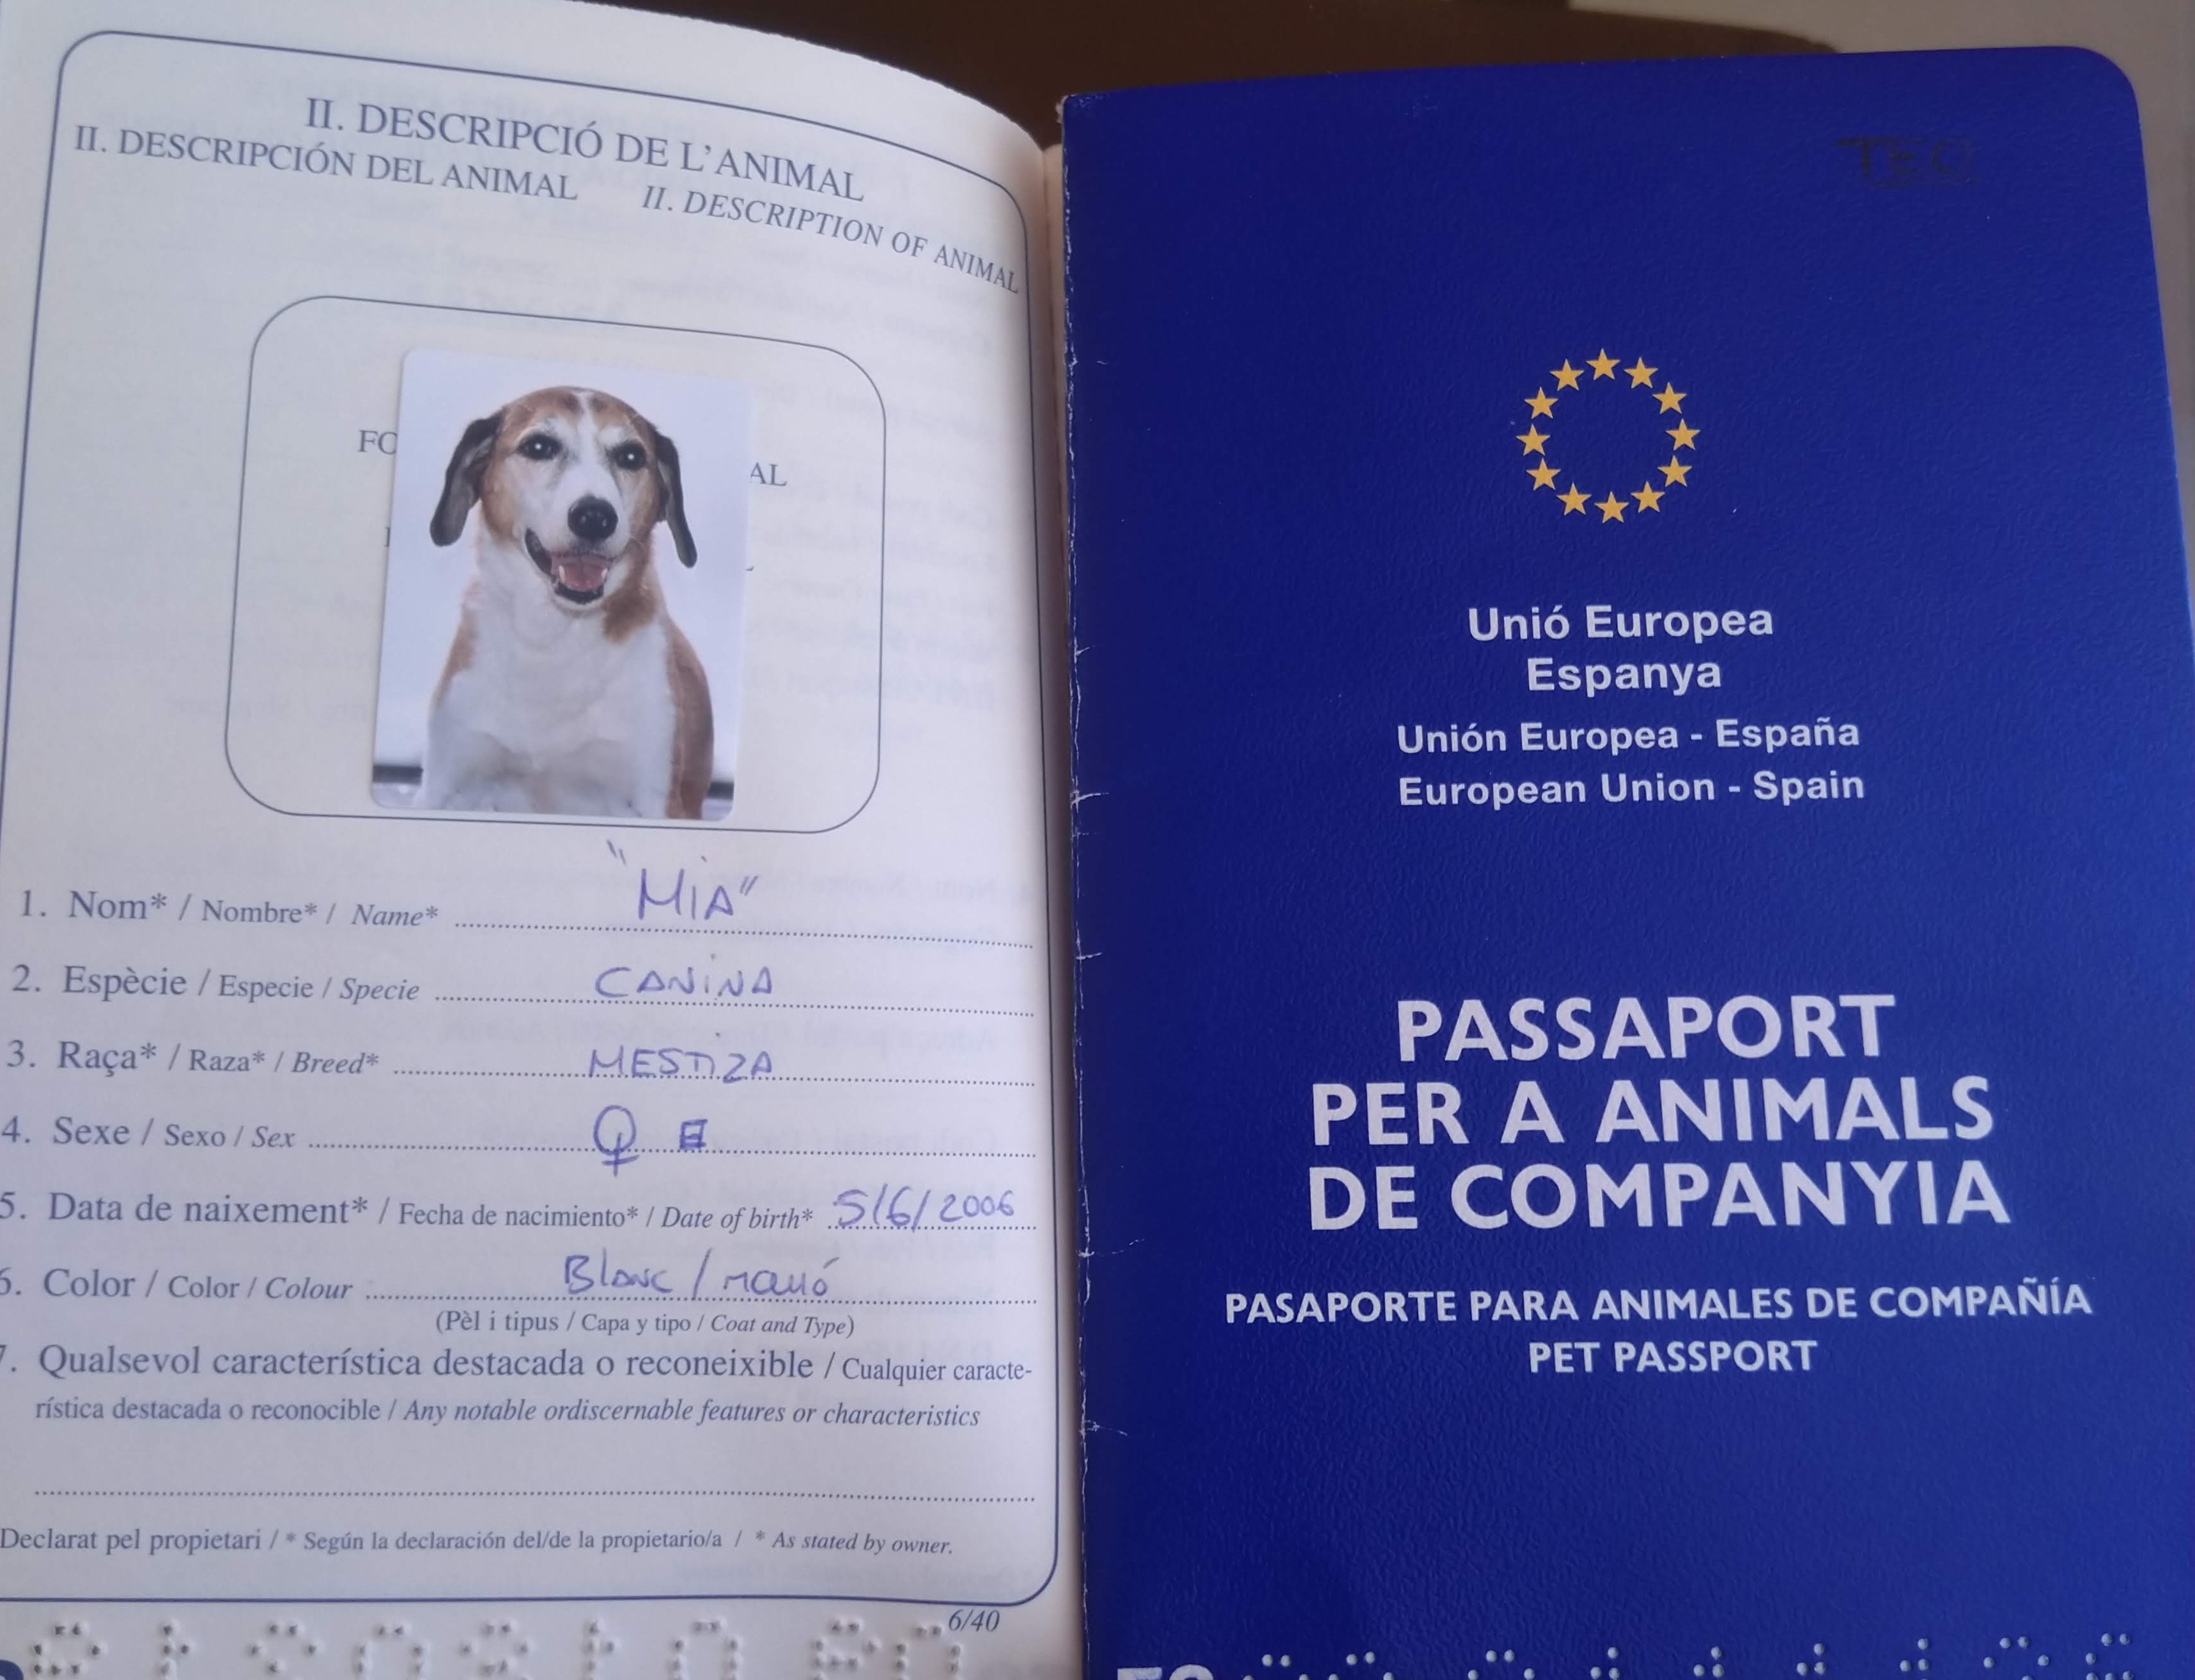 II. DESCRIPCIÓ DE L'ANIMAL
II. DESCRIPCIÓN DEL ANIMAL II. DESCRIPTION OF ANIMAL
FO AL
"MIA"
1. Nom* / Nombre* / Name*
2. Espècie / Especie / Specie CANINA
3. Raça* / Raza* / Breed* MESTIZA
4. Sexe / Sexo / Sex ♀ E
5. Data de naixement* / Fecha de nacimiento* / Date of birth* 5/6/2006
6. Color / Color / Colour Blanc / marró
(Pèl i tipus / Capa y tipo / Coat and Type)
7. Qualsevol característica destacada o reconeixible / Cualquier caracte-
rística destacada o reconocible / Any notable ordiscernable features or characteristics
Declarat pel propietari / * Según la declaración del/de la propietario/a / * As stated by owner.
6/40
TEO
Unió Europea
Espanya
Unión Europea - España
European Union - Spain
PASSAPORT
PER A ANIMALS
DE COMPANYIA
PASAPORTE PARA ANIMALES DE COMPAÑÍA
PET PASSPORT
ES